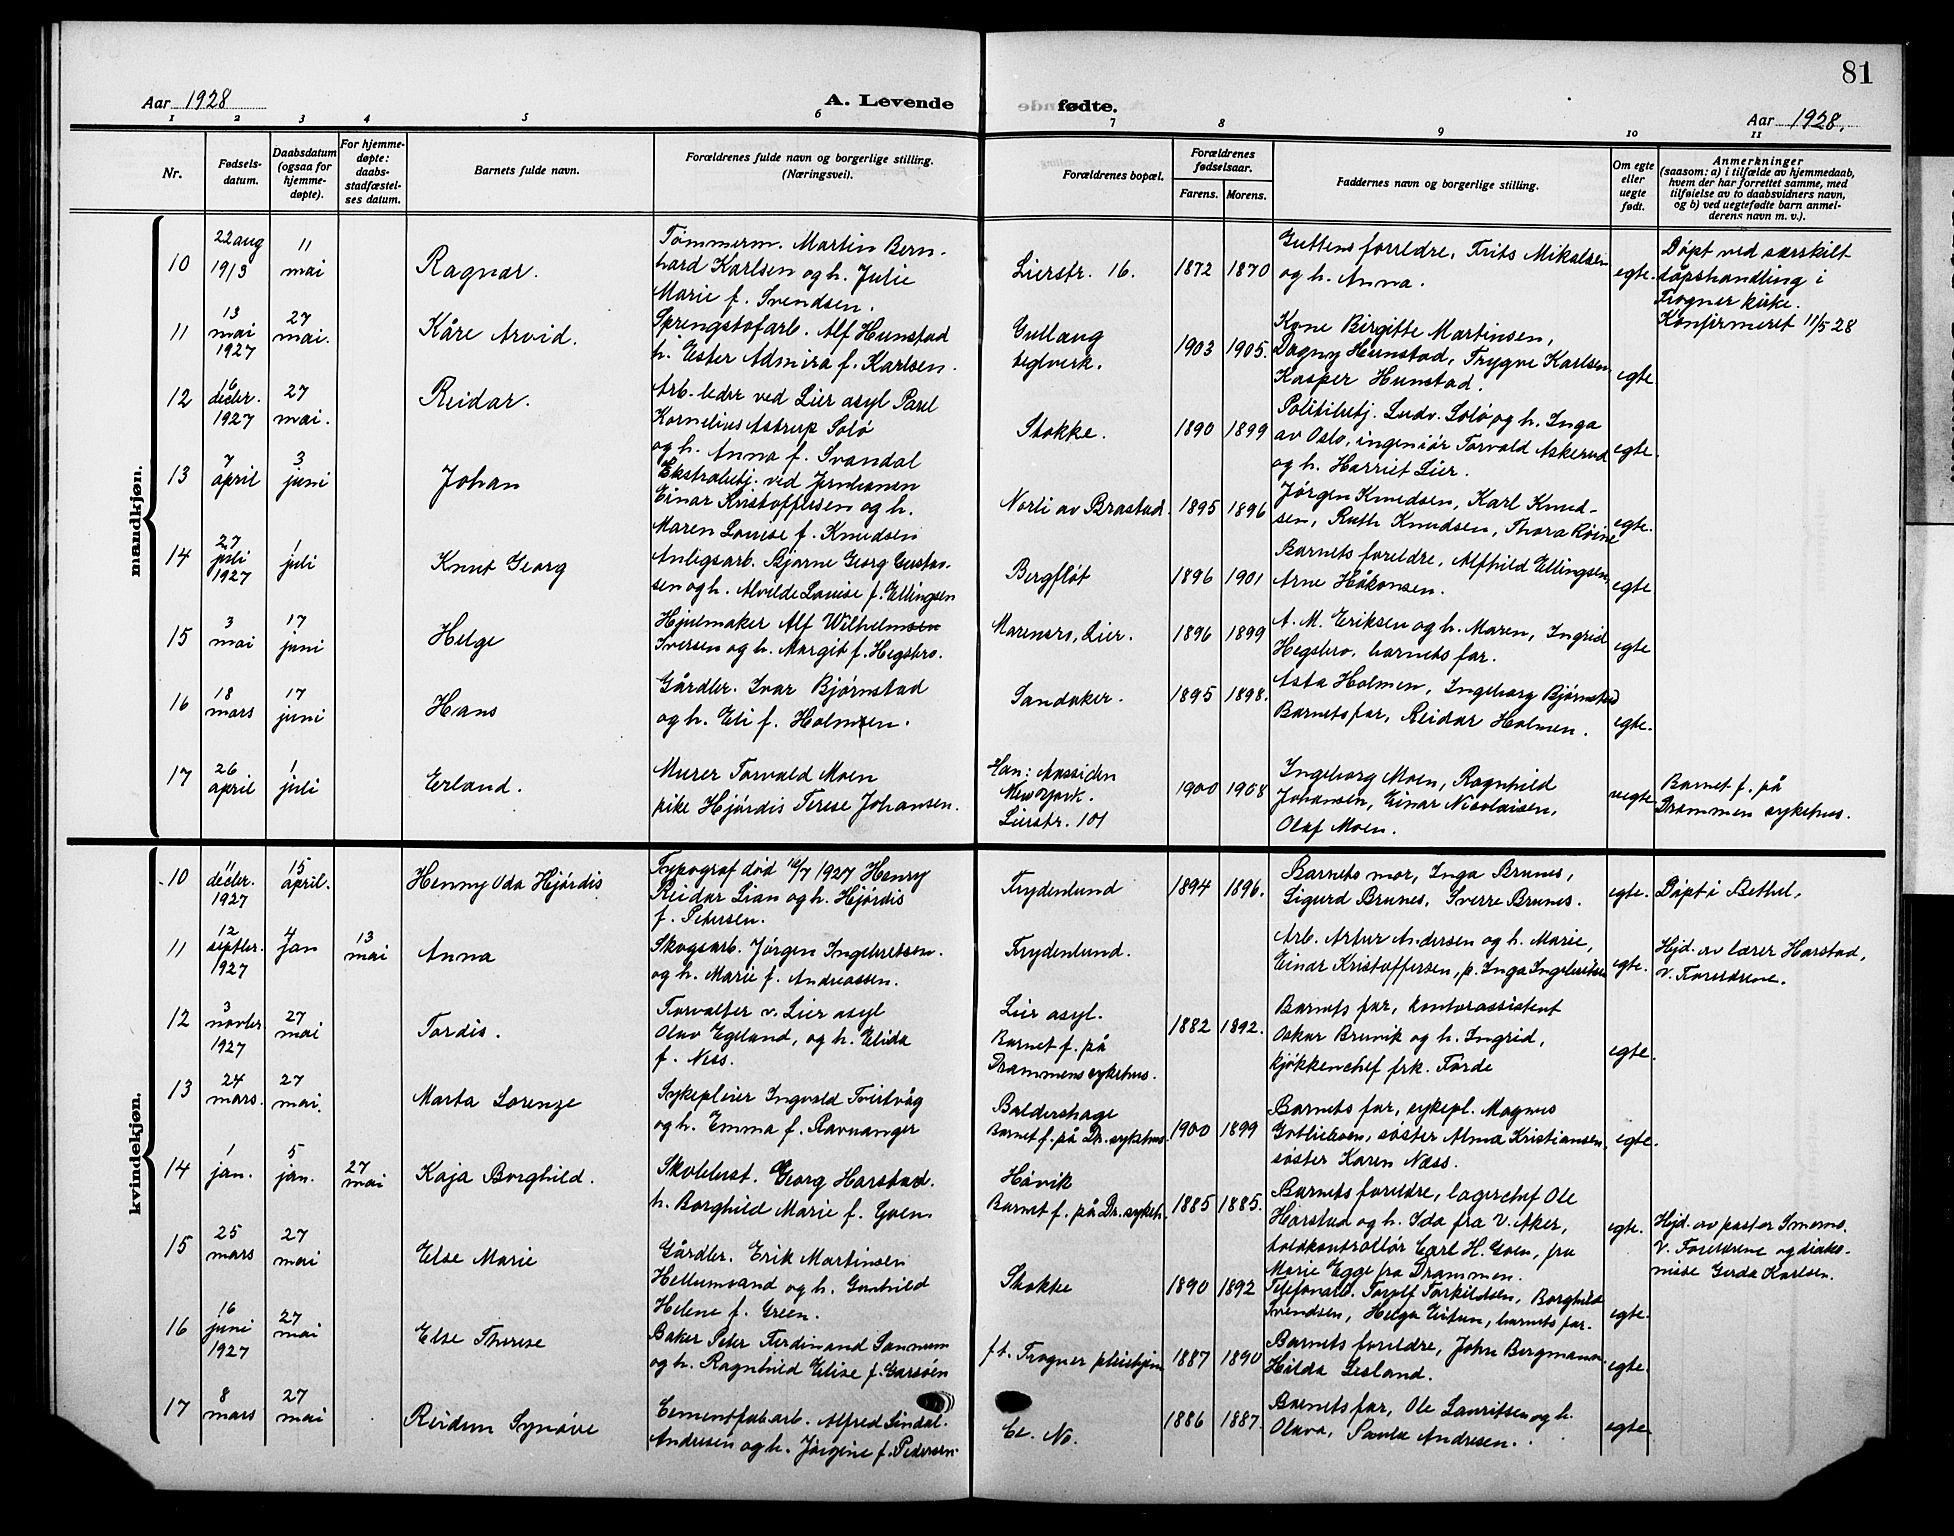 81
Aar 1928
A. Levende
fødte.
Aar 1928.
1 2 3 4 5 6 7 8 9 10 11
Nr.
Fødsels-
datum.
Daabsdatum
(ogsaa for
hjemme-
døpte).
For hjemme-
døpte:
daabs-
stadfæstel-
ses datum.
Barnets fulde navn.
Forældrenes fulde navn og borgerlige stilling.
(Næringsvei).
Forældrenes bopæl.
Forældrenes
fødselsaar.
Farens. Morens.
Faddernes navn og borgerlige stilling.
Om egte
eller
uegte
født.
Anmerkninger
(saasom: a) i tilfælde av hjemmedaab,
hvem der har forrettet samme, med
tilføielse av to daabsvidners navn,
og b) ved uegtefødte barn anmel-
derens navn m. v.).
mandkjøn.
10
22 aug
1913
11
mai
Ragnar.
Tømmerm. Martin Bern-
hard Karlsen og h. Julie
Marie f. Svendsen.
Lierstr. 16.
1872 1870
Guttens foreldre, Frits Mikalsen
og h. Anna.
egte.
Døpt ved særskilt
dåpshandling i
Frogner kirke.
Konfirmeret 11/5 28
11
13
mai
1927
27
mai.
Kåre Arvid.
Sprengstofarb. Alf Hunstad
h. Ester Admira f. Karlsen.
Gullaug
teglverk.
1903 1905.
Kone Birgitte Martinsen,
Dagny Hunstad, Trygve Karlsen
Kasper Hunstad.
egte
12
16
decbr.
1927
27
mai.
Reidar.
Arb. leder ved Lier asyl Parel
Kornelius Astrup Solø
og h. Anna f. Svandal
Stokke.
1890 1899
Politibetj. Ludv. Solø og h. Inga
av Oslo, ingeniør Torvald Askerud
og h. Harriet Lier.
egte.
13
7
april
3
juni
Johan
Ekstrabetj. ved Jernbanen
Einar Kristoffersen og h.
Maren Louise f. Knudsen
Norli av Brastad.
1895 1896
Jørgen Knudsen, Karl Knud-
sen, Ruth Knudsen, Thora Røine
egte.
14
27
juli
1927
1
juli
Knut Georg
Anligsarb. Bjarne Georg Gustav-
sen og h. Alvilde Louise f. Ellingsen
Bergfløt
1896 1901
Barnets foreldre, Alfhild Ellingsen,
Arne Håkonsen.
egte
15
3
mai
17
juni
Helge
Hjulmaker Alf Wilhelmsen
Iversen og h. Margit f. Hegsbro.
Marensro, Lier.
1896 1899
A. M. Eriksen og h. Maren, Ingrid
Hegsbro, barnets far.
egte
16
18
mars
17
juni
Hans
Gårdbr. Ivar Bjørnstad
og h. Eli f. Holmsen.
Sandaker.
1895 1898.
Asta Holmen, Ingeborg Bjørnstad
Barnets far, Reidar Holmen.
egte.
17
26
april
1
juli
Erland.
Murer Torvald Moen
pike Hjørdis Terese Johansen.
Han: Aassiden
New York.
Lierstr. 101
1900 1908
Ingeborg Moen, Ragnhild
Johansen, Einar Nicolaisen,
Olaf Moen.
uegte
Barnet f. på
Drammen sykehus.
kvindekjøn.
10
11
decbr.
1927
15
april.
Henny Oda Hjørdis
Typograf død 12/7 1927 Henry
Reidar Lian og h. Hjørdis
f. Petersen.
Frydenlund
1894 1896.
Barnets mor, Inga Brunes,
Sigurd Brunes, Sverre Brunes.
egte.
Døpt i Bethel.
11
12
septbr.
1927
4
jan
13
mai
Anna
Skogsarb. Jørgen Ingebretsen.
og h. Marie f. Andreassen.
Frydenlund.
Arb. Artur Andersen og h. Marie,
Einar Kristoffersen, p. Inga Ingebretsen
egte.
Hjd. av lærer Harstad,
v. Foreldrene.
12
3
novbr
1927
27
mai
Tordis.
Forvalter v. Lier asyl
Olav Egeland, og h. Elida
f. Næss.
Lier asyl.
Barnet f. på
Drammens sykehus.
1882 1892.
Barnets far, kontorassistent
Oskar Bruvik og h. Ingrid,
kjøkkenchef frk. Førde
egte.
13
24
mars.
27
mai.
Marta Lorenze
Sykepleier Ingvald Tveitvåg
og h. Emma f. Ravnanger
Baldershage
Barnet f. på Dr. sykehus.
1900 1899
Barnets far, sykepl. Magnus
Gotliebsen, søster Alma Kristiansen,
søster Karen Næss.
egte.
14
1
jan.
5
jan.
27
mai
Kaja Borghild.
Skolebest. Georg Harstad.
h. Borghild Marie f. Goen.
Høvik
Barnet f. på Dr. sykeh.
1885 1885.
Barnets foreldre, lagerchef Ole
Harstad og h. Ida fra V. Aker,
toldkontrollør Carl H. Goen, fru
Marie Egge fra Drammen.
egte.
Hjd. av pastor Smemo.
v. Foreldrene og diako-
nisse Gerda Karlsen.
15
25
mars
27
mai
Else Marie
Gårdbr. Erik Martinsen
Hellumsand og h. Gunhild
Helene f. Green.
Stokke
1890 1892
Telefonarb. Torolf Torkildsen, Borghild
Svendsen, Helga Eritun, barnets far.
egte.
16
16
juni
1927
27
mai
Else Therese
Baker Peter Ferdinand Sannum
og h. Ragnhild Elise f. Garsjøn
f.t. Frogner pleiehjem
1887 1890
Barnets foreldre, John Bergmann.
Hilda Lesland.
egte.
17
8
mars
27
mai
Reidun Synøve
Cementfabarb. Alfred Sindal.
Andresen og h. Jørgine f. Pedersen
Ce. No.
1886 1887.
Barnets far, Ole Lauritsen og h.
Olava, Paula Andresen.
egte